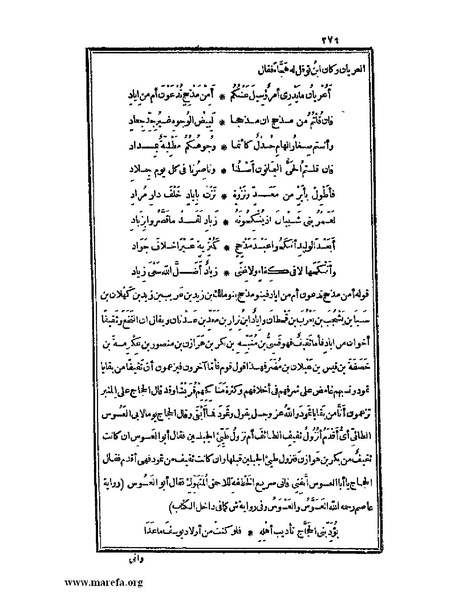 ٢٧٩
العريان وكان ابن نوفل له هجّاءً فقال
أعُريانُ ما يدرى امرؤٌ سِيلَ عنكم * أمن مَذْحِجٍ تُدْعَوْنَ أم من اياد
فان قلتُمُ من مذحجٍ ان مذحجا * لَبِيضُ الوجوه غيرُ جِدِّ جِعاد
وأنتم صغارُ الهامِ حُدْلٌ كأنما * وجوهكُم مَطْلِيَّةٌ بمداد
فان قلتمُ الحىُّ اليمانون أصلُنا * وناصرُنا فى كل يوم جِلاد
فأطْوِلْ بأيرٍ من مَعَدٍّ ونَزْوَةٍ * نَزَتْ باياد خَلْفَ دار مُراد
لعمرُ بنى شيبان اذ يُنكحونه * زبادِ لقد ما قصَّروا بزباد
أبعد الوليد أنكحوا عبد مذحج * كمُنْزِيةٍ عَيْرا خلافَ جواد
وأنكحها لا فى كِفاءٍ ولا غِنًى * زيادٌ أضلَّ الله سَعْىَ زياد
قوله أمن مذحج تدعون أم من اياد فبنو مذحج بنو مالك بن زيد بن عريب بن زيد بن كهلان بن
سبا بن يشجب بن يعرب بن قحطان واياد ابن نزار بن معد بن عدنان ويقال ان النخع وثقيفا
أخوان من اياد فأما ثقيف فهو قسىُّ بن مُنَبِّه بن بكر بن هوازن بن منصور بن عكرمة بن
خَصَفَة بن قيس بن عيلان بن مُضَر فهذا قول قوم فأما آخرون فيزعمون أن ثقيفا من بقايا
ثمود ونسبهم غامض على شرفهم فى أخلاقهم وكثرة مناكحهم قريشا وقد قال الحجاج على المنبر
تزعمون أنّا من بقايا ثمود والله عز وجل يقول وثمودَ فما أبقى وقال الحجاج يوما لابى العَسوس
الطائى أىُّ أقدم أنُزُولُ ثقيف الطائف أم نزول طيّئ الجبلين فقال أبو العسوس ان كانت
ثقيف من بكر بن هوازن فنزول طيئ الجبلين قبلها وان كانت ثقيف من ثمود فهى أقدم فقال
الحجاج يا أبا العسوس اتَّقِنى فانى سريع الخَطْفة للاحمق المُتَهَوِّك فقال أبو العسوس (رواية
عاصم رحمه الله العَسوس والعَسْوَس وفى رواية ش كما فى داخل الكتاب)
يُؤدِّبنى الحجّاجُ تأديبَ أهلِهِ * فلو كنت من أولاد يوسف ما عَدا
وانى
www.marefa.org